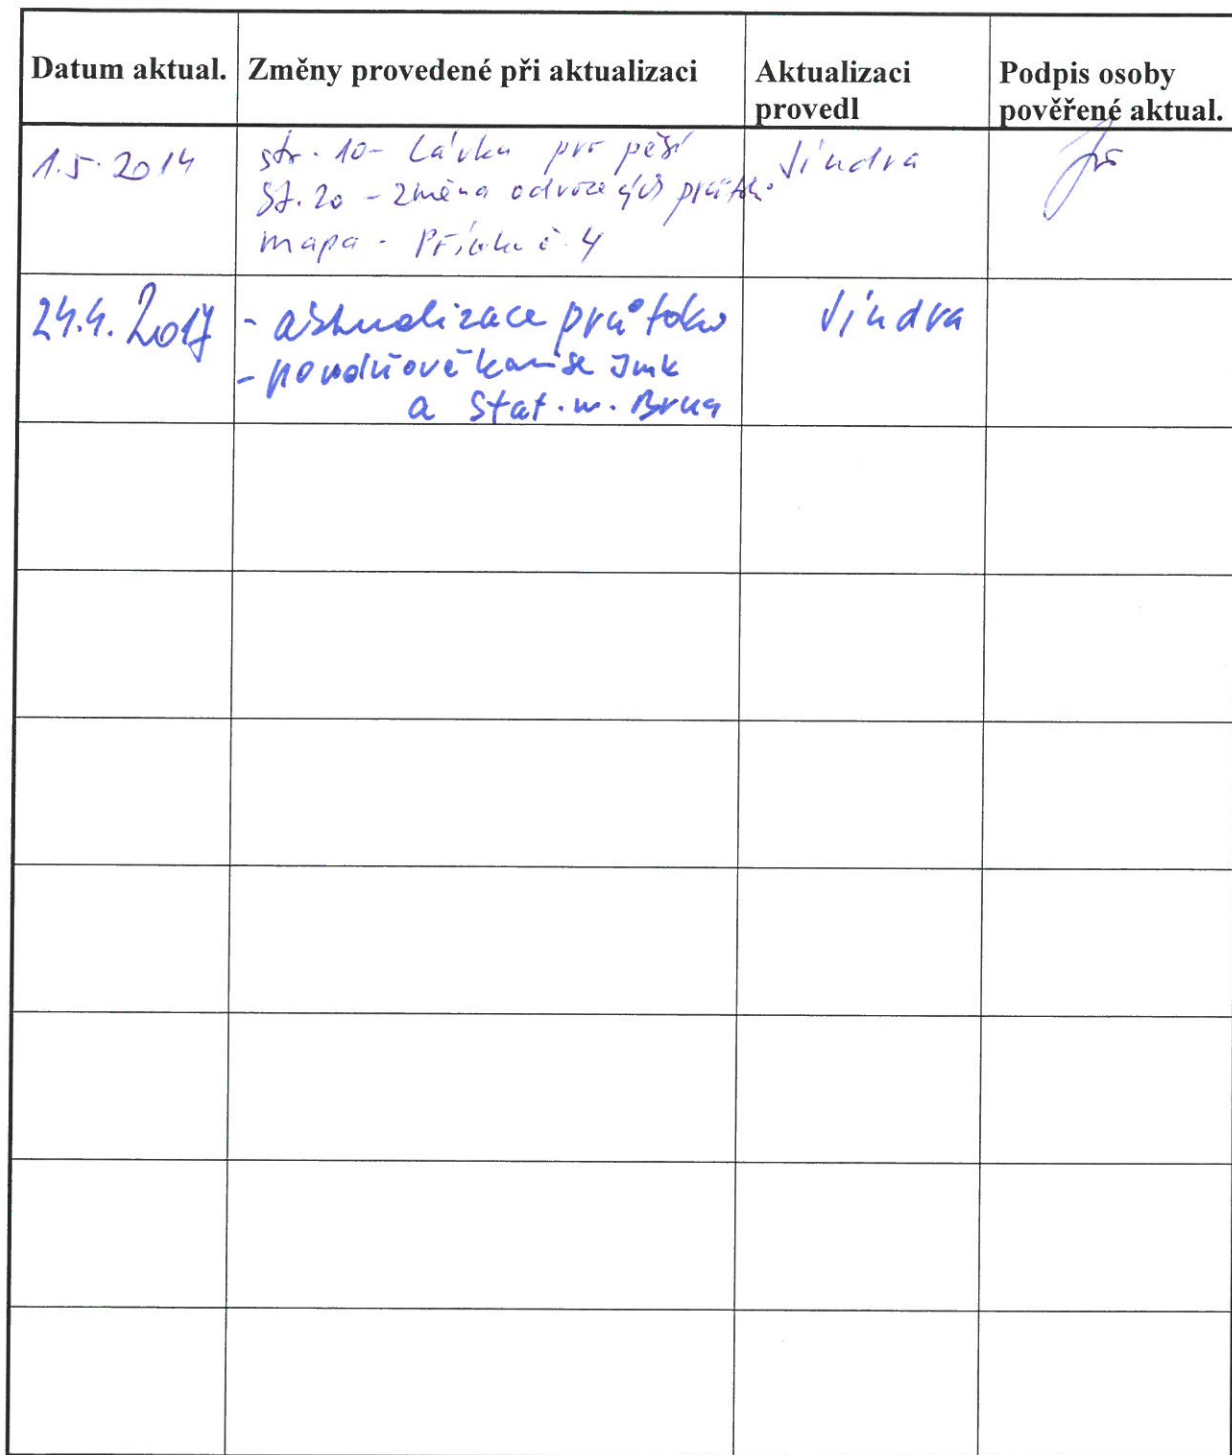 Datum aktual.
Změny provedené při aktualizaci
Aktualizaci
provedl
Podpis osoby
pověřené aktual.
1.5.2014
str. 10- Lávka pro pěší
St. 20 - změna odvoze ných průtoků
mapa - Příloha č. 4
Jindra
24.4. 2017
- aktualizace průtoků
- povodňové komise JmK
a Stat. m. Brna
Jindra